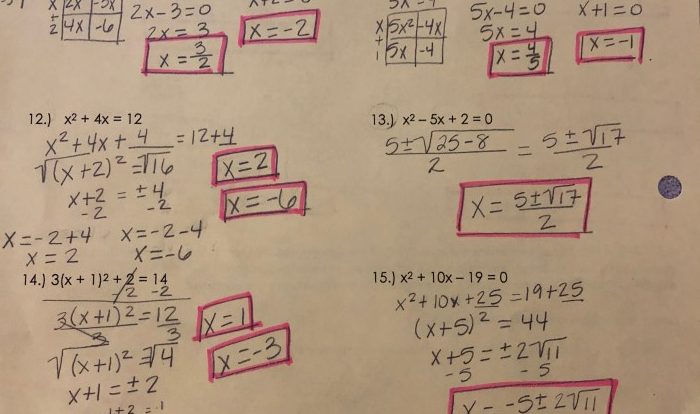 x 2x -3x
+ 2 4x -6
2x-3=0
2x = 3
x = 3/2
x = -2
5x²-4x
5x -4
5x-4=0
5x = 4
x = 4/5
x+1=0
x = -1
12.) x² + 4x = 12
x² + 4x + 4 = 12+4
√(x+2)² = √16
x+2 = ±4
-2 -2
x = -2+4 x = -2-4
x = 2 x = -6
x = 2
x = -6
13.) x² – 5x + 2 = 0
5±√25-8 / 2 = 5±√17 / 2
x = 5±√17 / 2
14.) 3(x + 1)² + 2 = 14
-2 -2
3(x+1)² = 12
3 3
√(x+1)² = √4
x+1 = ±2
x = 1
x = -3
15.) x² + 10x – 19 = 0
x² + 10x + 25 = 19+25
(x+5)² = 44
x+5 = ±2√11
-5 -5
x = -5±2√11